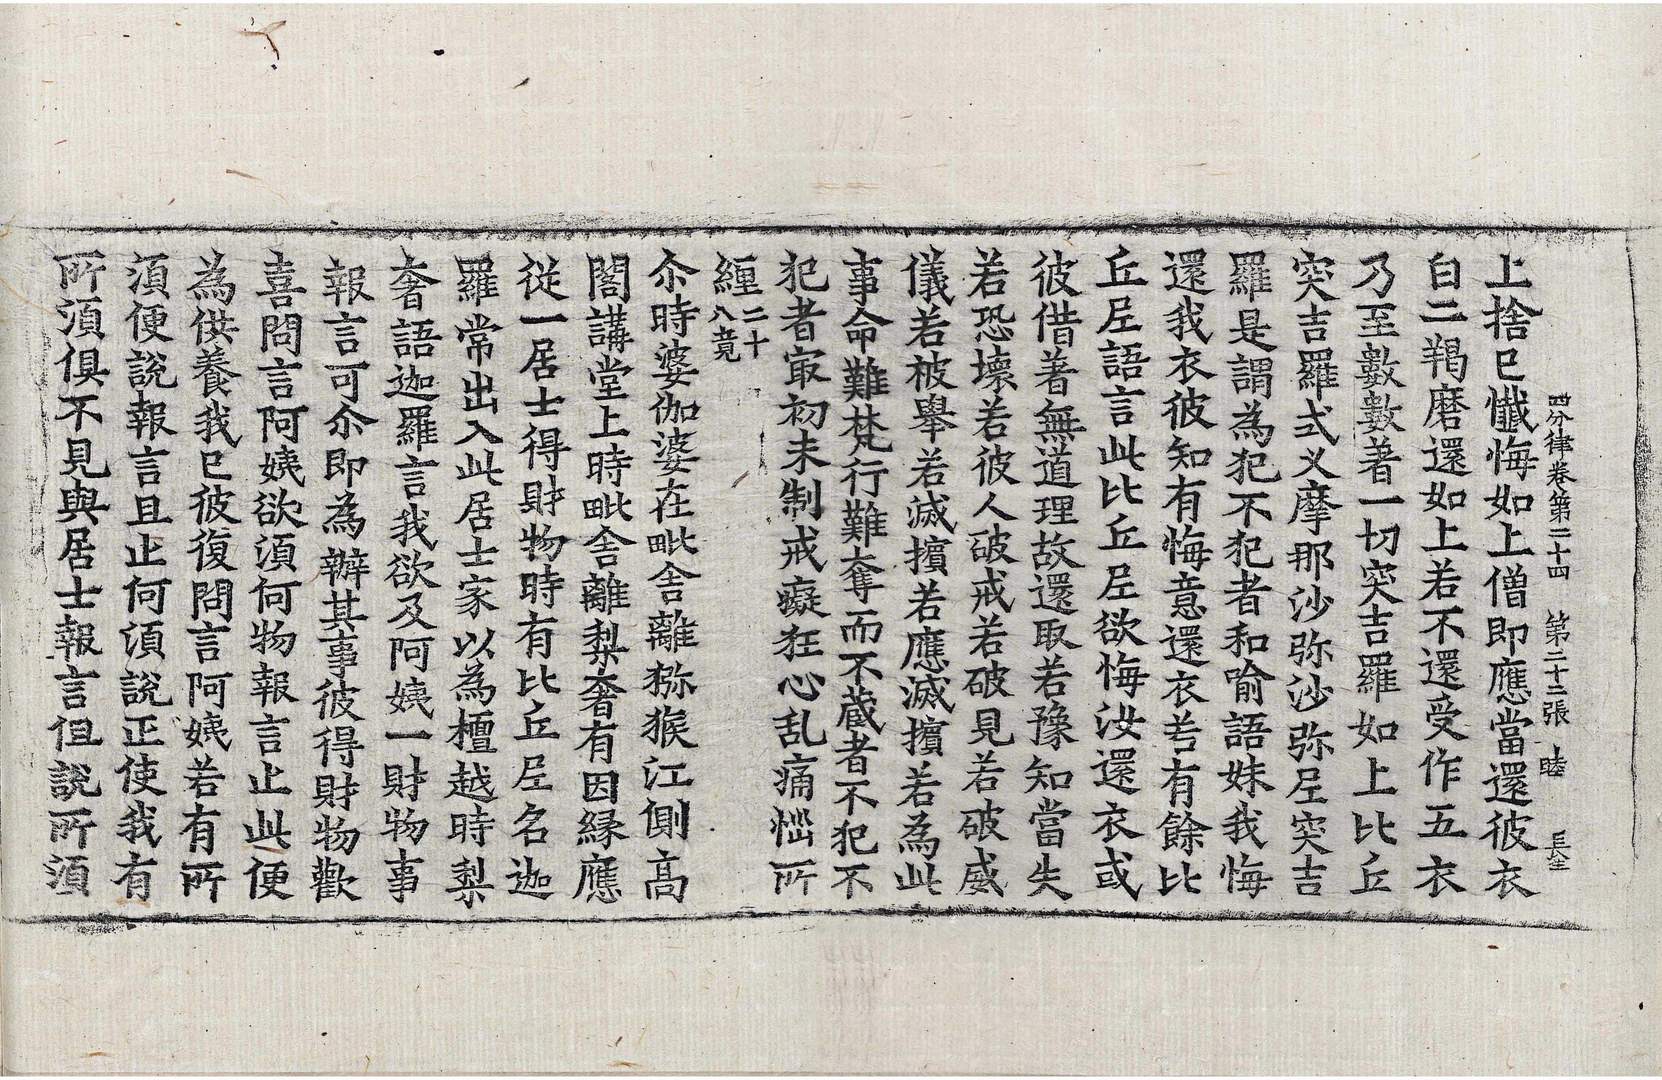 四分律卷第二十四 第二十二張 睦 長生
上捨已懺悔如上僧即應當還彼衣
白二羯磨還如上若不還受作五衣
乃至數數著一切突吉羅如上比丘
突吉羅式叉摩那沙弥沙弥尼突吉
羅是謂為犯不犯者和喻語妹我悔
還我衣彼知有悔意還衣若有餘比
丘尼語言此比丘尼欲悔汝還衣或
彼借著無道理故還取若豫知當失
若恐壞若彼人破戒若破見若破威
儀若被舉若滅擯若應滅擯若為此
事命難梵行難奪而不蔵者不犯不
犯者㝡初未制戒癡狂心乱痛惱所
纏二十八竟
尒時婆伽婆在毗舍離猕猴江側高
閣講堂上時毗舍離梨奢有因縁應
從一居士得財物時有比丘尼名迦
羅常出入此居士家以為檀越時梨
奢語迦羅言我欲及阿姨一財物事
報言可尒即為辦其事彼得財物歡
喜問言阿姨欲湏何物報言止此便
為供養我已彼復問言阿姨若有所
湏便說報言且止何湏說正使我有
所湏俱不見與居士報言但說所湏